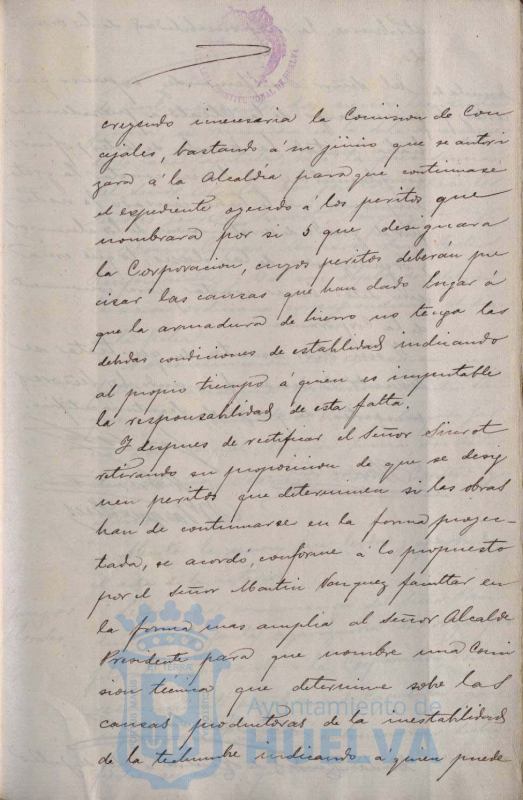 creyendo innecesaria la Comision de Con
cejales, bastando á su juicio que se autori
zara á la Alcaldía para que continuase
el expediente oyendo á los peritos que
nombrara por si ó que designara
la Corporacion, cuyos peritos deberán pre
cisar las causas que han dado lugar á
que la armadura de hierro no tenga las
debidas condiciones de establidad indicando
al propio tiempo á quien es imputable
la responsablidad de esta falta.
Y despues de rectificar el Señor Siurot
retirando su proposicion de que se desig
nen peritos que determinen si las obras
han de continuarse en la forma proyec-
tada, se acordó, conforme á lo propuesto
por el Señor Martin Vazquez facultar en
la forma mas amplia al Señor Alcalde
Presidente para que nombre una Comi
sion tecnica que determine sobre las
causas productoras de la inestablidad
de la techumbre indicando á quien puede
Ayuntamiento de
HUELVA